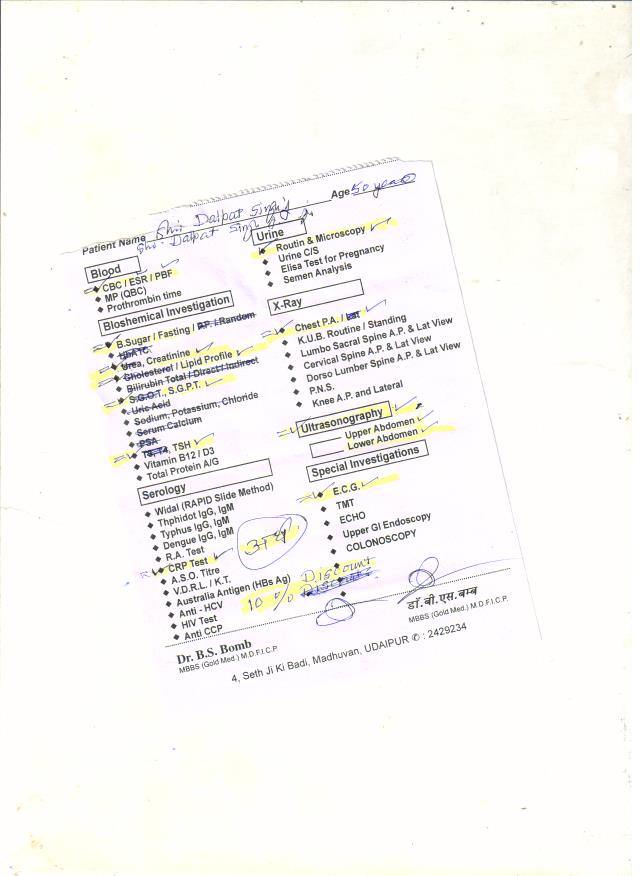 Patient Name Shri Dalpat Singh Ji Age 50 years
Shri. Dalpat Singh Ji
Blood
CBC / ESR / PBF
MP (QBC)
Prothrombin time
Bioshemical Investigation
B.Sugar / Fasting / P.P. / Random
HbA1C
Urea, Creatinine
Cholesterol / Lipid Profile
Bilirubin Total / Direct / Indirect
S.G.O.T., S.G.P.T.
Uric Acid
Sodium, Potassium, Chloride
Serum Calcium
PSA
T3, T4, TSH
Vitamin B12 / D3
Total Protein A/G
Serology
Widal (RAPID Slide Method)
Thphidot IgG, IgM
Typhus IgG, IgM
Dengue IgG, IgM
R.A. Test
CRP Test
A.S.O. Titre
V.D.R.L. / K.T.
Australia Antigen (HBs Ag)
Anti - HCV
HIV Test
Anti CCP
Urine
Routin & Microscopy
Urine C/S
Elisa Test for Pregnancy
Semen Analysis
X-Ray
Chest P.A. / Lat
K.U.B. Routine / Standing
Lumbo Sacral Spine A.P. & Lat View
Cervical Spine A.P. & Lat View
Dorso Lumber Spine A.P. & Lat View
P.N.S.
Knee A.P. and Lateral
Ultrasonography
Upper Abdomen
Lower Abdomen
Special Investigations
E.C.G.
TMT
ECHO
Upper GI Endoscopy
COLONOSCOPY
10 % Discount
Dr. B.S. Bomb
MBBS (Gold Med.) M.D.F.I.C.P.
डॉ.बी.एस.बम्ब
MBBS (Gold Med.) M.D.F.I.C.P.
4, Seth Ji Ki Badi, Madhuvan, UDAIPUR ✆ : 2429234